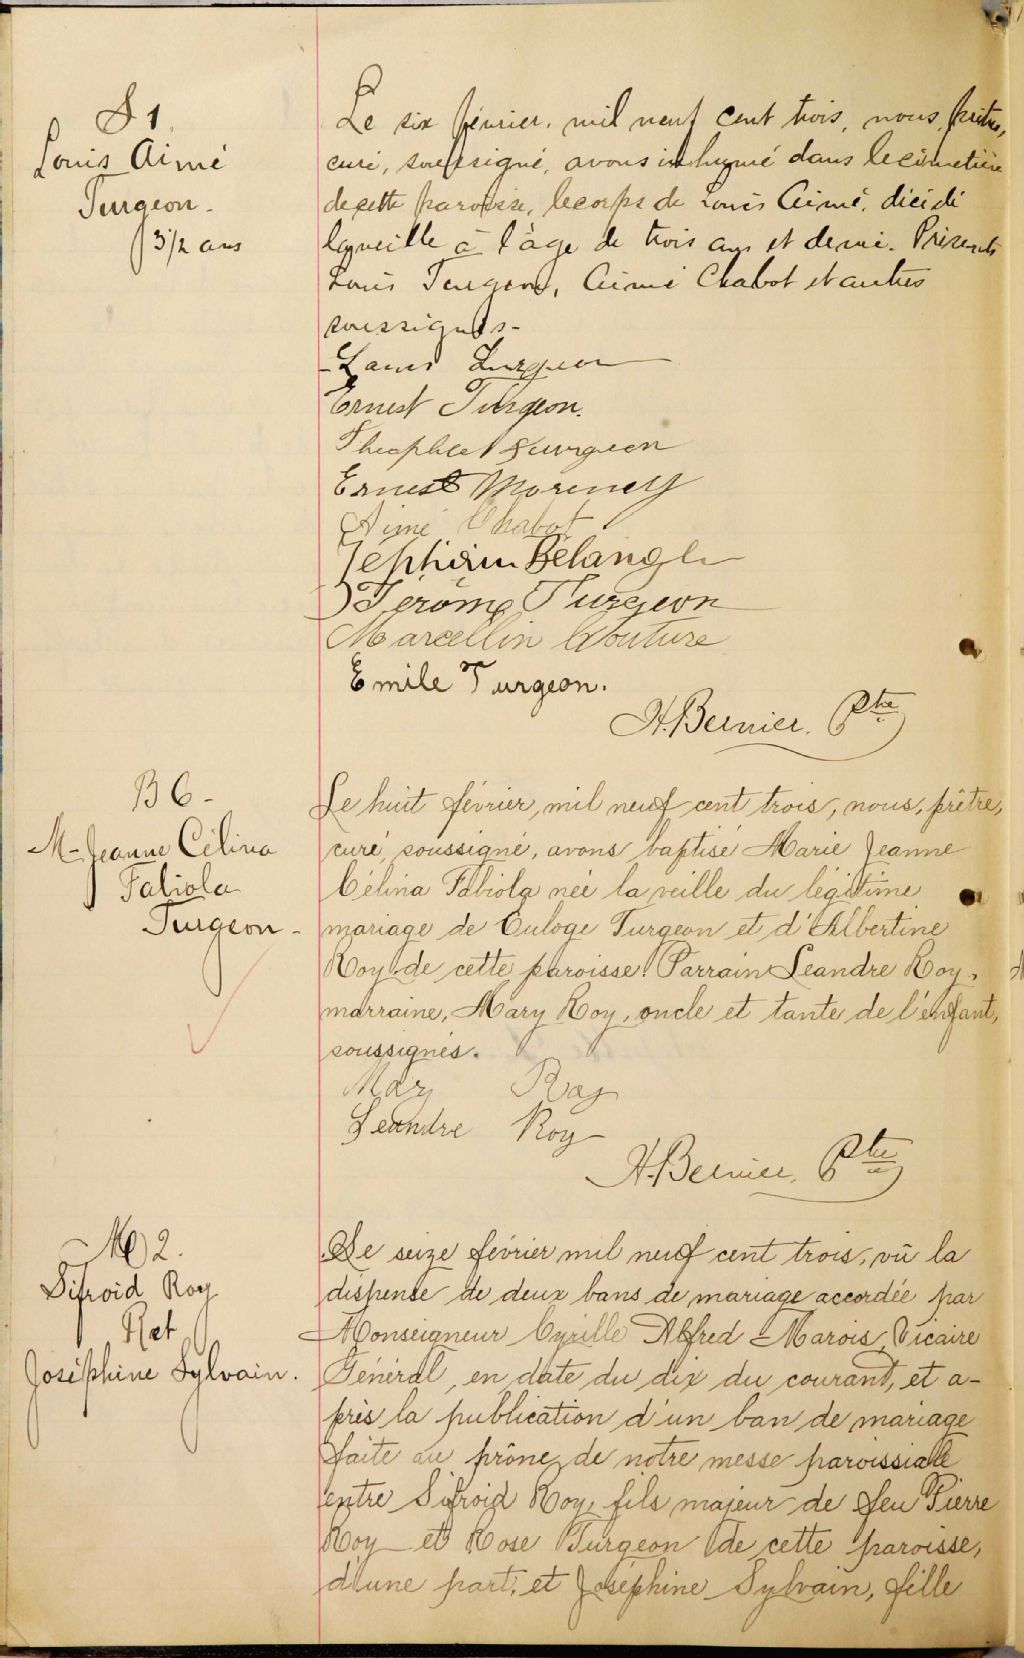 S 1.
Louis Aimé
Turgeon.
3 1/2 ans
Le six février, mil neuf cent trois, nous, prêtre,
curé, soussigné, avons inhumé dans le cimetière
de cette paroisse, le corps de Louis Aimé, décédé
la veille à l'âge de trois ans et demi. Présents
Louis Turgeon, Aimé Chabot et autres
soussignés-
- Louis Turgeon
Ernest Turgeon.
Théophile Turgeon
Ernest Morency
Aimé Chabot
Zéphirin Bélanger
Jérôme Turgeon
Marcellin Couture
Emile Turgeon.
H. Bernier. Ptre
B 6-
M-Jeanne Célina
Fabiola
Turgeon-
Le huit février, mil neuf cent trois, nous, prêtre,
curé, soussigné, avons baptisé Marie Jeanne
Célina Fabiola née la veille du légitime
mariage de Euloge Turgeon et d'Albertine
Roy de cette paroisse. Parrain Leandre Roy,
marraine, Mary Roy, oncle et tante de l'enfant,
soussignés.
Mary Roy
Leandre Roy
H. Bernier, Ptre
M 2.
Sifroid Roy
et
Joséphine Sylvain.
Le seize février mil neuf cent trois, vû la
dispense de deux bans de mariage accordée par
Monseigneur Cyrille Alfred Marois, Vicaire
Général, en date du dix du courant, et a-
près la publication d'un ban de mariage
faite au prône de notre messe paroissiale
entre Sifroid Roy, fils majeur de feu Pierre
Roy et Rose Turgeon de cette paroisse,
d'une part, et Joséphine Sylvain, fille